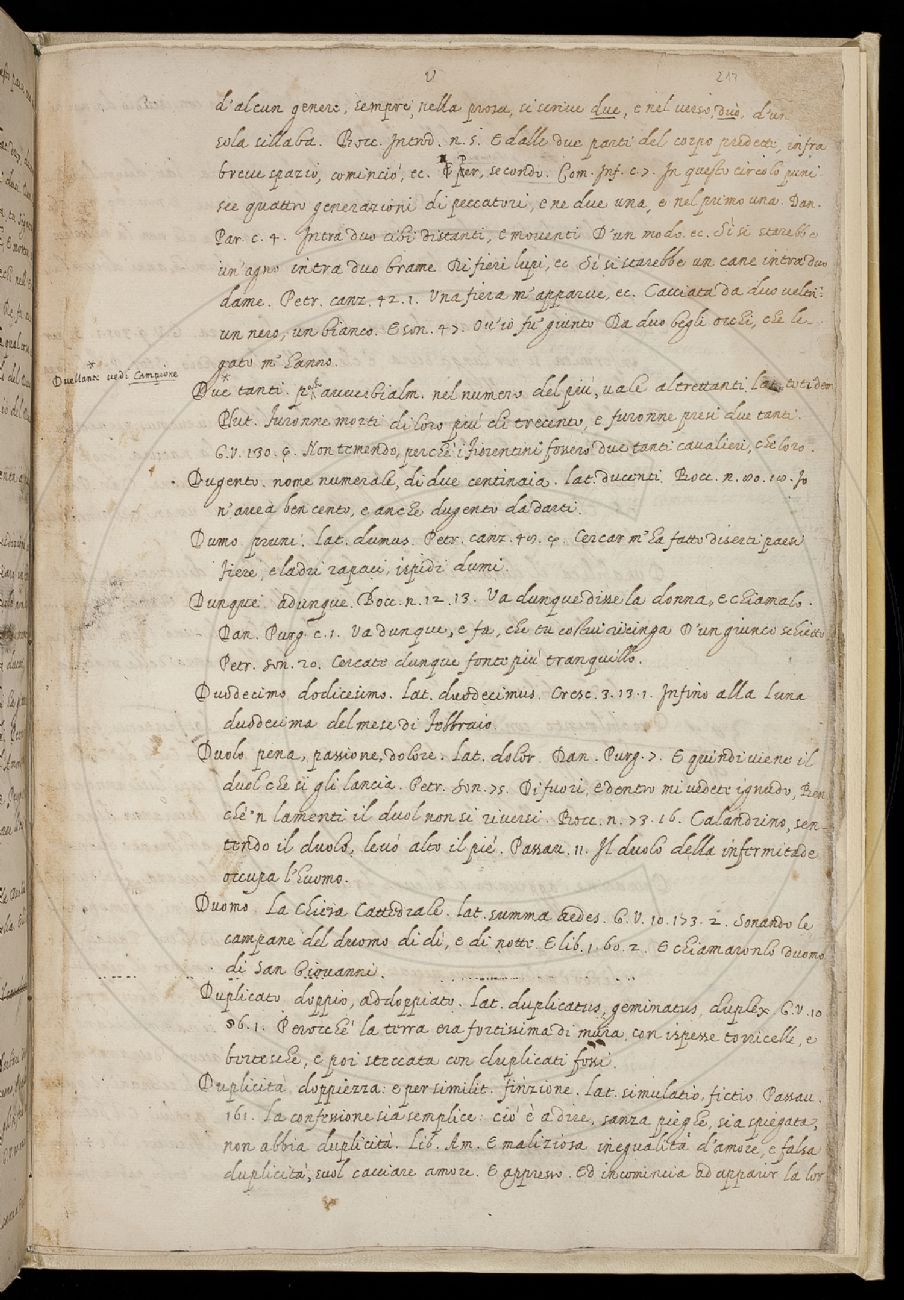 V
217
d'alcun genere, sempre, nella prosa, si scriue due, e nel verso, duo, d'un
sola sillaba. Bocc. Introd. n. 5. E dalle due parti del corpo predette, infra
breue spazio, cominciò, ec. per, secondo. Com. Inf. c. 7. In questo circolo puni
sce quattro generazioni di peccatori, e ne due una, e nel primo una. Dan.
Par. c. 4. Intra duo cibi distanti, e mouenti D'un modo. ec. Sì si starebbe
un'agno intra duo brame Di fieri lupi, ec Sì si starebbe un cane intra duo
dame. Petr. canz. 42. 1. Una fiera m'apparue, ec. Cacciata da duo veltri
un nero, un bianco. E son. 47. Ou'io fu' giunto Da duo begli occhi, che le
gato m'hanno.
Duellante vedi Campione
Due tanti. posto auuerbialm. nel numero del più, vale altrettanti. lat. totidem
Plut. Furonne morti di loro più di trecento, e furonne presi due tanti.
G. V. 130. 9. Non temendo, perchè i Fiorentini fossero due tanti cavalieri, che loro.
Dugento. nome numerale, di due centinaia. lat. ducenti. Bocc. n. 80. 10. Io
n'auea ben cento, e anche dugento da darti.
Dumo pruni. lat. dumus. Petr. canz. 48. 9. Cercar m'ha fatto diserti paesi
Fiere, e ladri rapaci, ispidi dumi.
Dunque adunque. Bocc. n. 12. 13. Va dunque disse la donna, e chiamalo.
Dan. Purg. c. 1. Va dunque, e fa, che tu costui ricinga D'un giunco schietto
Petr. son. 20. Cercate dunque fonte più tranquillo.
Duodecimo dodicesimo. lat. duodecimus. Cresc. 3. 13. 1. Infino alla luna
duodecima del mese di Febbraio.
Duolo pena, passione, dolore. lat. dolor. Dan. Purg. 7. E quindi viene il
duol che sì gli lancia. Petr. son. 75. Di fuori, e dentro mi vedete ignudo, Ben
chè 'n lamenti il duol non si riversi. Bocc. n. 73. 16. Calandrino, sen-
tendo il duolo, leuò alto il piè. Passau. 11. Il duolo della infermitade
occupa l'huomo.
Duomo. la Chiesa Cattedrale. lat. summa aedes. G. V. 10. 173. 2. Sonando le
campane del duomo di dì, e di notte. E lib. 1. 60. 2. E chiamaronlo duomo
di San Giouanni.
Duplicato doppio, addoppiato. lat. duplicatus, geminatus, duplex G. V. 10
86. 1. Perocchè la terra era fortissima di mura, con ispesse torricelle, e
bertesche, e poi steccata con duplicati fossi.
Duplicità doppiezza: e per similit. finzione. lat. simulatio, fictio Passau.
161. la confessione sia semplice: ciò è a dire, sanza pieghe, sia spiegata,
non abbia duplicità. Lib. Am. E maliziosa inequalità d'amore, e falsa
duplicità, suol cacciare amore. E appresso. Ed incomincia ad apparir la lor